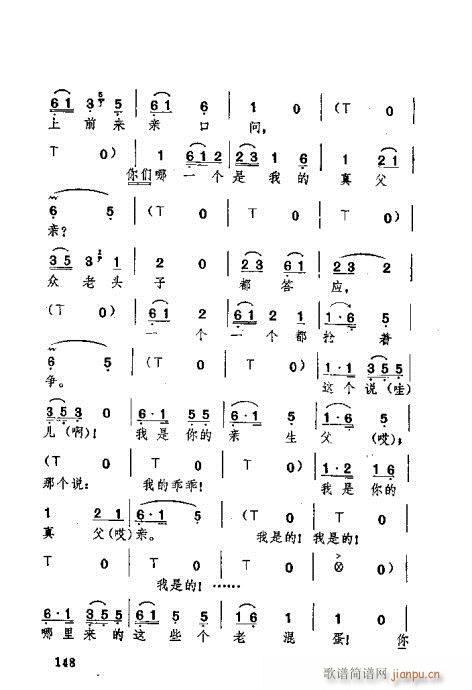 6 1 3 5 5 | 6 1 6 | 1 0 | (T 0
上 前 来 亲 口 问,
T 0) | 1 6 1 2 | 2 3 1 6 | 1 2 1
你们 哪 一 个 是 我 的 真 父
6 5 | (T 0 | T 0 | T 0)
亲?
3 5 3 2 1 | 2 0 | 2 3 6 1 | 2 3 2
众 老 头 子 都 答 应,
(T 0) | 6 1 2 | 6 1 2 1 | 1·6 5
一 个 一 个 都 抢 着
6 5 | (T 0 | T 0) | 1·1 3 5 5
争。 这 个 说(哇)
3 5 3 0 | 6·1 5 5 | 6·1 5 | 1·6 5
儿(啊)! 我 是 你的 亲 生 父 (哎);
(T 0 | T 0 | T 0) | 1·2 1 6
那个说: 我的乖乖! 我 是 你的
1 2 2 | 6·1 5 | (T 0 | T 0
真 父(哎)亲。 我是的! 我是的!
T 0 | T 0 | T 0 | ⊗ 0)
我是的! ……
6·1 2 2 | 2 1 6 5 | 6 1 5 | 1 6 1 6
哪 里 来 的 这 些 个 老 混 蛋! 你
148
歌谱简谱网 jianpu.cn